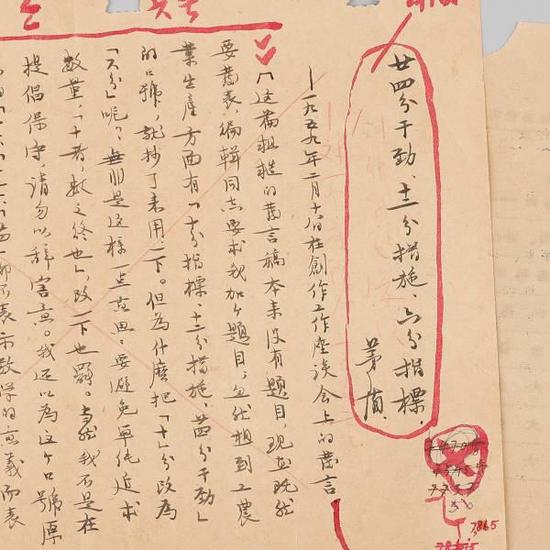 廿四分干劲、十二分措施、六分指標。
茅盾
—一九五九年二月十八日在創作工作座談会上的發言
「这篇粗糙的發言稿本来没有題目,現在既然
要發表,編輯同志要求我加个題目,忽然想到工農
業生產方面有「十分指標、十二分措施、廿四分干劲」
的口號,就抄了来用一下。但為什麼把「十」分改為
「六分」呢?無非是这樣一点意思:要避免單純追求
数量,「十者,数之终也」,改一下也罷。当然我不是在
提倡保守,請勿以辭害意。我还以為这个口號原
表示数学的意義而表
50
7865